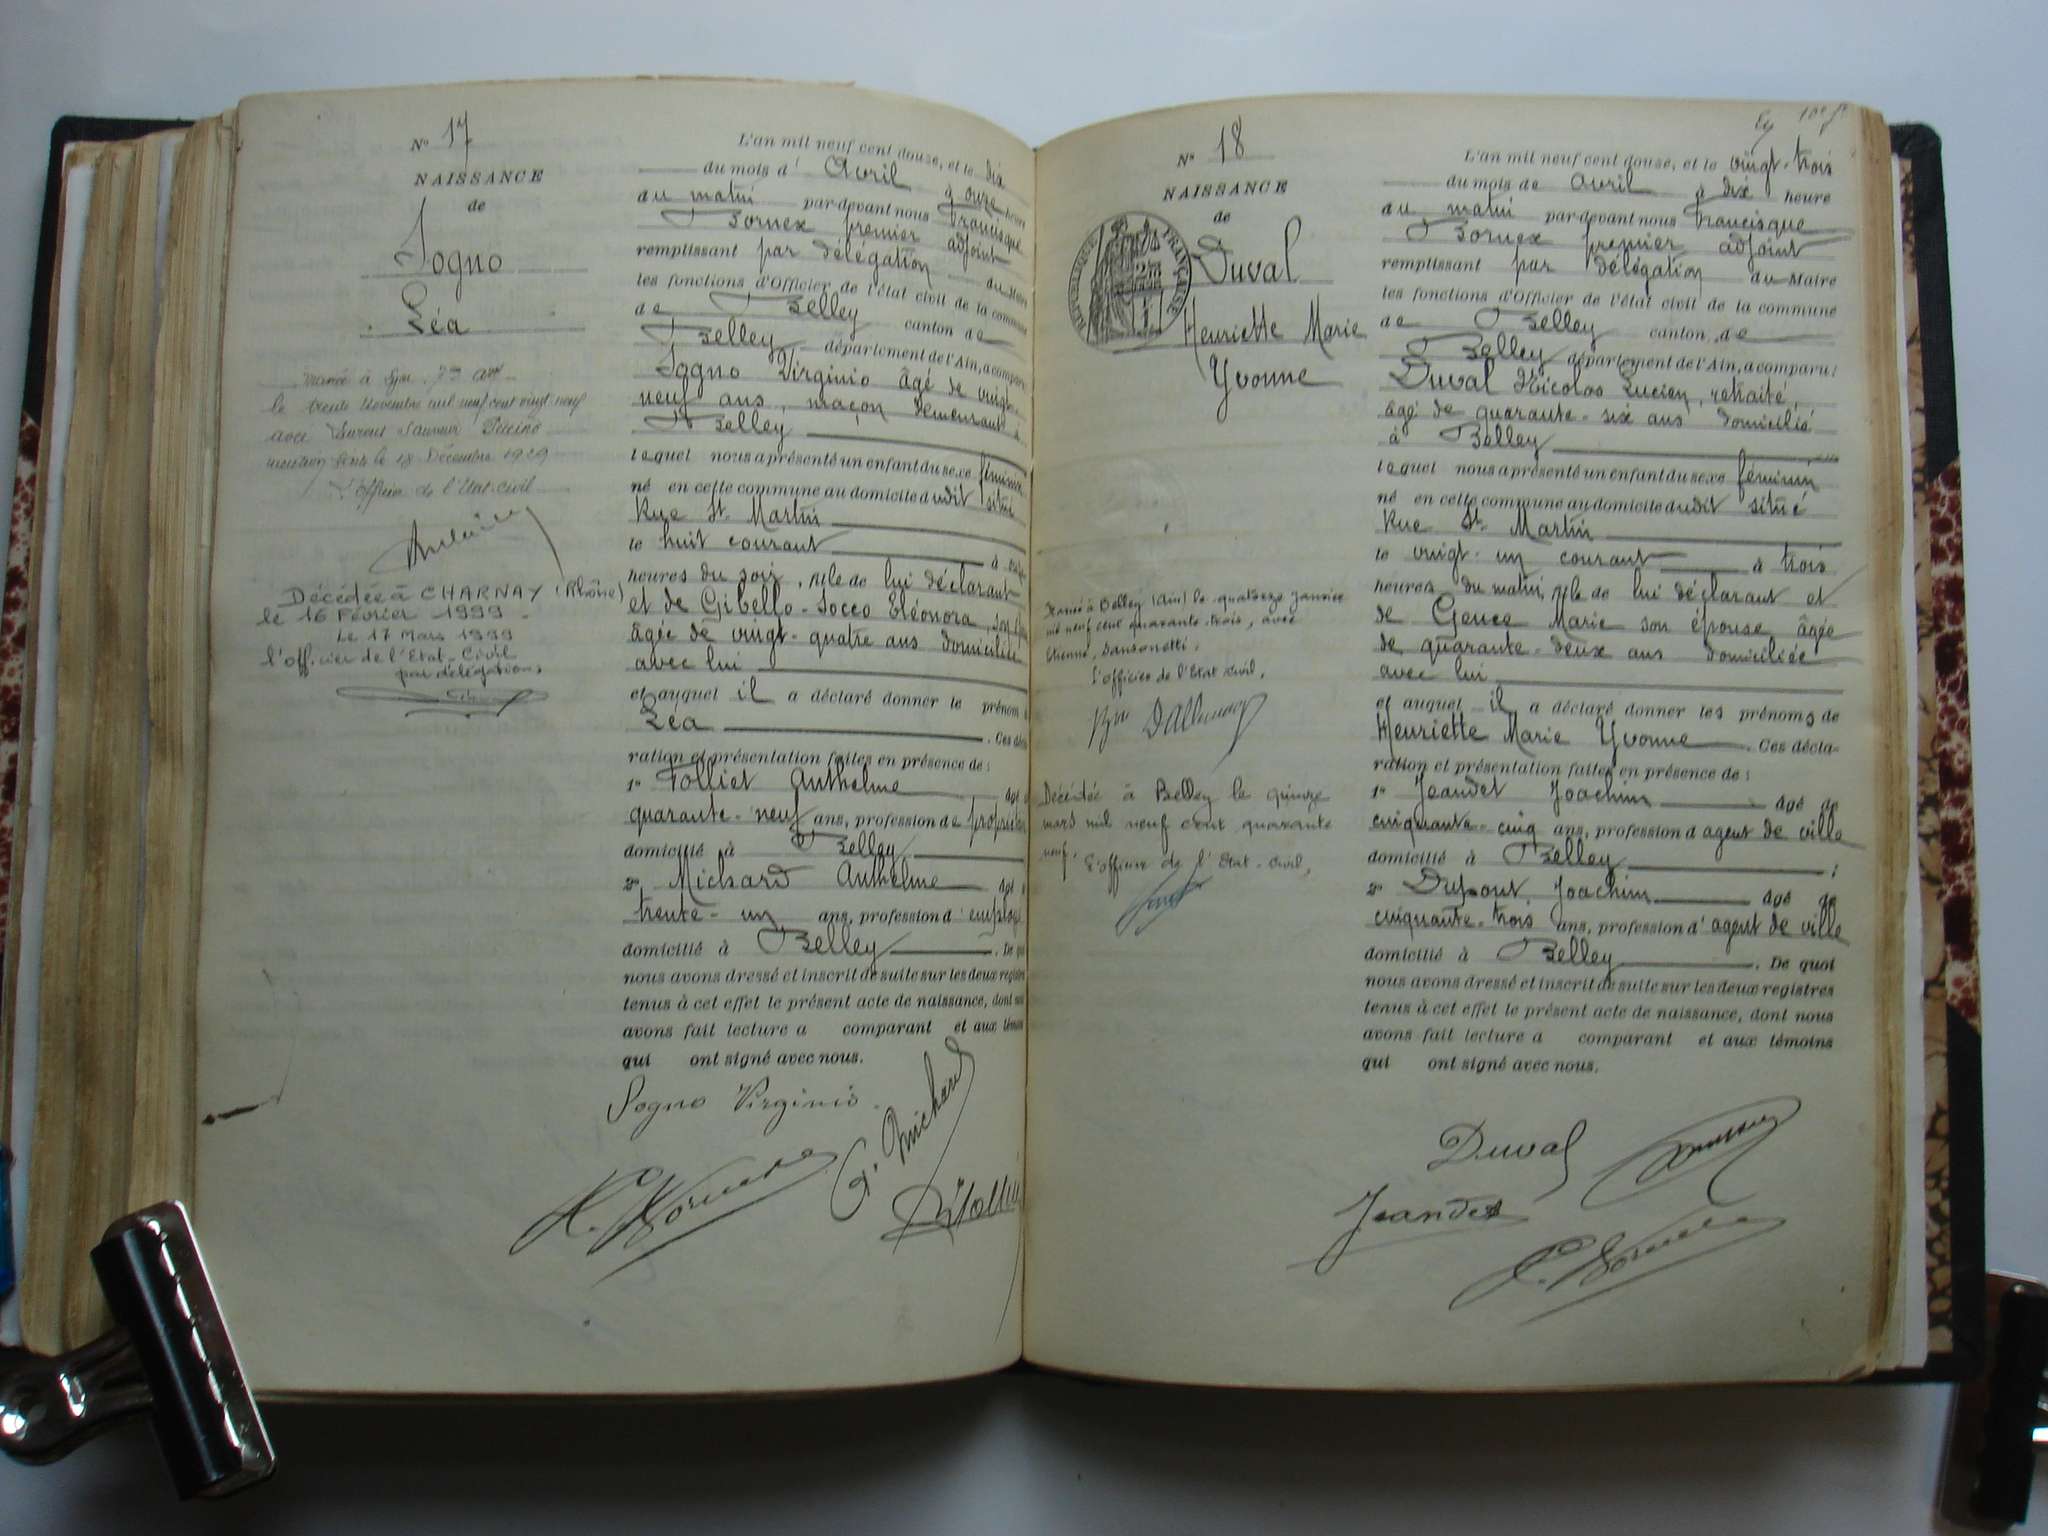 N° 17
NAISSANCE
de
Sogno
Léa
le trente Novembre mil neuf cent vingt neuf
avec
le 18 Décembre 1929
L'officier de l'Etat-civil
Décédée à CHARNAY (Rhône)
le 16 Février 1999
Le 17 Mars 1999
l'officier de l'Etat-Civil
par délégation,
L'an mil neuf cent douze, et le dix
du mois d' Avril à onze heure
du matin par-devant nous Francisque
Bornex premier adjoint
remplissant par délégation du Maire
les fonctions d'Officier de l'état civil de la commune
de Belley canton de
Belley département de l'Ain, a comparu
Sogno Virginio âgé de vingt-
neuf ans, maçon demeurant à
Belley
lequel nous a présenté un enfant du sexe féminin
né en cette commune au domicile dudit situé
Rue St. Martin
le huit courant à
heures du soir, fille de lui déclarant
et de Gibello-Socco Eléonora,
âgée de vingt-quatre ans domiciliée
avec lui
et auquel il a déclaré donner le prénom
Léa . Ces décla
ration et présentation faites en présence de :
1° Folliet Anthelme âgé
quarante-neuf ans, profession de propriétaire
domicilié à Belley
2° Michard Anthelme âgé
trente-un ans, profession d'employé
domicilié à Belley . De quoi
nous avons dressé et inscrit de suite sur les deux registres
tenus à cet effet le présent acte de naissance, dont nous
avons fait lecture a comparant et aux témoins
qui ont signé avec nous.
Sogno Virginio
Michard
N° 18
NAISSANCE
de
REPUBLIQUE FRANÇAISE
Duval
Henriette Marie
Yvonne
Mariée à Belley (Ain) le quatorze janvier
mil neuf cent quarante-trois, avec
Etienne, Sansonetti.
L'officier de l'Etat civil,
Décédée à Belley le quinze
mars mil neuf cent quarante
neuf.
L'officier de l'Etat-civil,
L'an mil neuf cent douze, et le vingt-trois
du mois de Avril à dix heure
du matin par-devant nous Francisque
Bornex premier adjoint
remplissant par délégation du Maire
les fonctions d'Officier de l'état civil de la commune
de Belley canton de
Belley département de l'Ain, a comparu :
Duval Nicolas Lucien, retraité,
âgé de quarante-six ans domicilié
à Belley
lequel nous a présenté un enfant du sexe féminin
né en cette commune au domicile dudit situé
Rue St. Martin
le vingt-un courant à trois
heures du matin, fille de lui déclarant et
de Gence Marie son épouse âgée
de quarante-deux ans domiciliée
avec lui
et auquel il a déclaré donner les prénoms de
Henriette Marie Yvonne . Ces décla-
ration et présentation faites en présence de :
1° Jeandet Joachim âgé de
cinquante-cinq ans, profession d'agent de ville
domicilié à Belley ;
2° Dupont Joachim âgé de
cinquante-trois ans, profession d'agent de ville
domicilié à Belley . De quoi
nous avons dressé et inscrit de suite sur les deux registres
tenus à cet effet le présent acte de naissance, dont nous
avons fait lecture a comparant et aux témoins
qui ont signé avec nous.
Duval
Jeandet